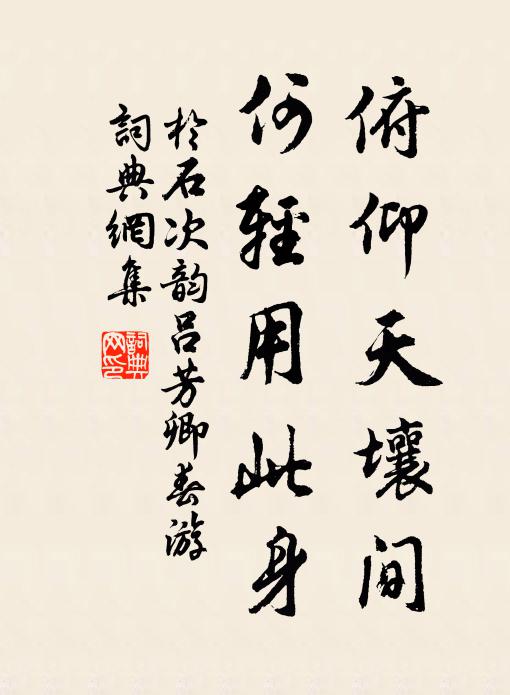 俯仰天壤间
何輕用此身
於石次韵吕芳卿春游
詞典網集
詞典网印